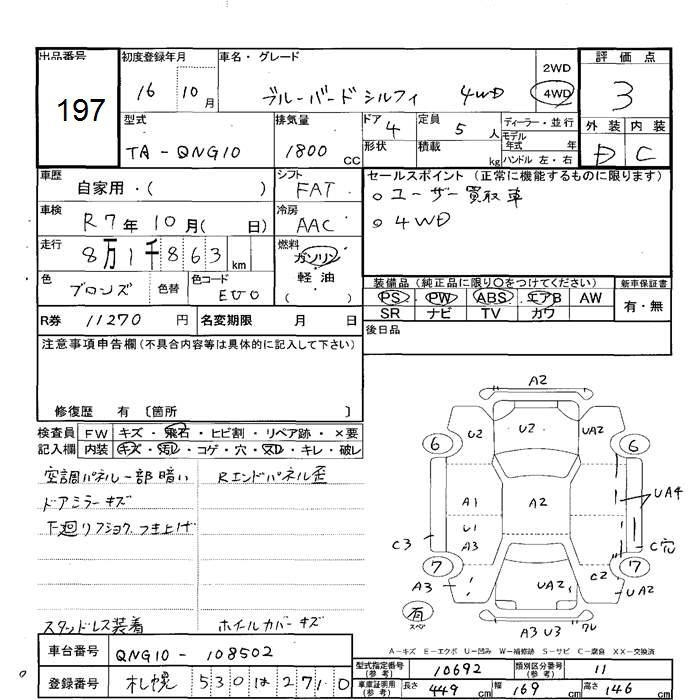 出品番号 初度登録年月 車名・グレード 2WD 評価点
197 16 10月 ブルーバードシルフィ 4WD 4WD 3
型式 排気量 ドア 4 定員 5人 ディーラー・並行 外装 内装
TA-QNG10 1800 CC 形状 積載 kg モデル年式 年 D C
ハンドル 左・右
車歴 自家用・( ) シフト FAT セールスポイント (正常に機能するものに限ります)
○ユーザー買取車
車検 R7年10月( 日) 冷房 AAC ○4WD
走行 8万1千863 km 燃料 ガソリン
軽油
( )
色 ブロンズ 色替 色コード EV0 装備品 (純正品に限り○をつけてください) 新車保証書
PS PW ABS エアB AW 有・無
R券 11270円 名変期限 月 日 SR ナビ TV カワ
後日品
注意事項申告欄(不具合内容等は具体的に記入して下さい)
修復歴 有 〔箇所 〕
検査員 FW キズ・飛石・ヒビ割・リペア跡・×要
記入欄 内装 キズ・汚れ・コゲ・穴・スレ・キレ・破レ
空調パネル一部暗い Rエンドパネル歪
ドアミラーキズ
下廻リフジョク つき上げ
スタッドレス装着 ホイルカバーキズ
A2
U2 U2 UA2
6 6
A1 A2 UA4
U1
C3 A3 C穴
7 C2 7
A3 UA2 UA2
有 スペア
A3 U3 ワレ
A-キズ E-エクボ U-凹み W-補修跡 S-サビ C-腐食 XX-交換済
車台番号 QNG10-108502
型式指定番号(参考) 10692 類別区分番号(参考) 11
登録番号 札幌 530は2710
車庫証明用(参考) 長さ 449cm 幅 169cm 高さ 146cm